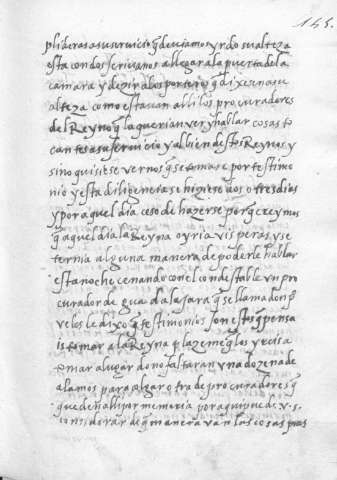 145.
plideras a su servicio q̃ deviamos yr do su alteza
esta con dos scrivanos a llegar a la puerta de la
camara y dezir a los porteros q̃ dixesen a su
alteza como estavan alli los procuradores
del Reyno q̃ la querian ver y hablar cosas to
cantes a su servicio y al bien destos Reynos y
si no quisiese vernos q̃ se tomase por testimo
nio y esta diligencia se hiziese dos o tres dias
y por aquel dia ceso de hazerse porq̃ creymos
q̃ aquel dia la Reyna oyria visperas y se
ternia alguna manera de poderle hablar
esta noche cenando con el condestable un pro
curador de guadalajara que se llama don p̃
velos le dixo q̃ testimonios son estos q̃ pensa
is tomar a la Reyna q̃
omar a lugar do no faltaran una dozena de
alamos para otra de procuradores q̃
que de alli por memoria por aqui puede v. s.
considerar de q̃ manera van las cosas pues